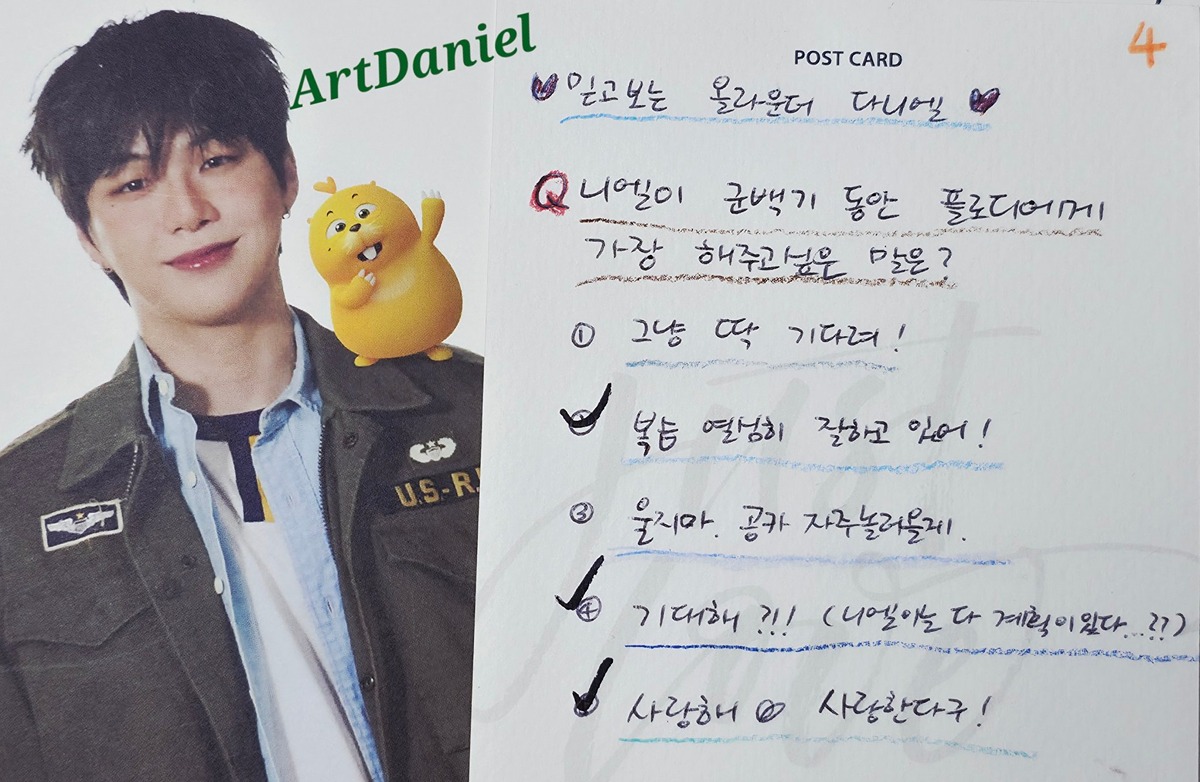 ArtDaniel
POST CARD
4
믿고보는 올라운더 다니엘
Q 니엘이 군백기 동안 플로디에게
가장 해주고싶은 말은?
① 그냥 딱 기다려!
② 복습 열심히 잘하고 있어!
③ 울지마. 공카 자주놀러올게.
④ 기대해?!! (니엘이는 다 계획이있다...??)
사랑해 사랑한다구!
U.S-R